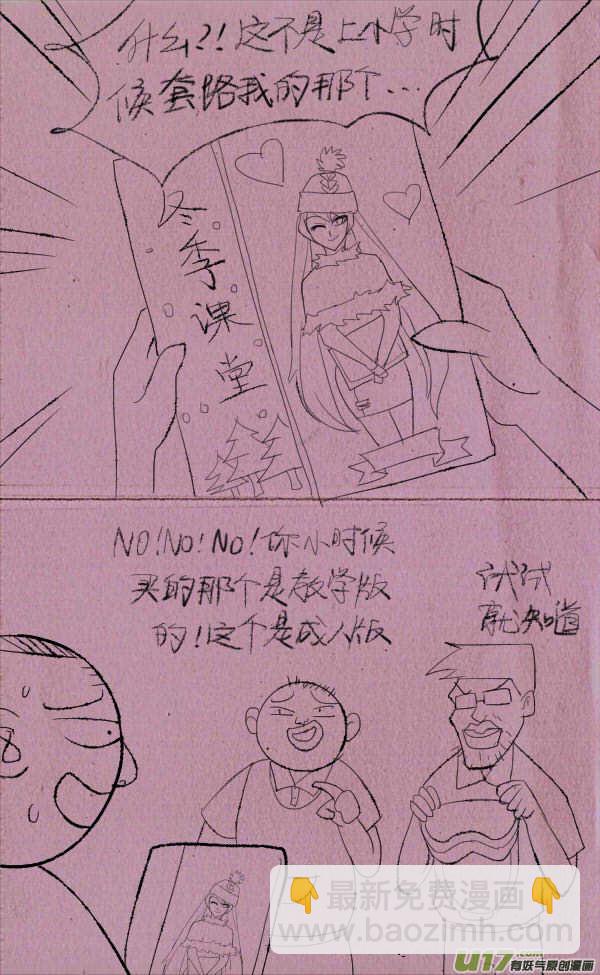 什么?!这不是上小学时
候套路我的那个...
冬季课堂
NO!NO!NO!你小时候
买的那个是教学版
的!这个是成人版
试试
就知道
最新免费漫画
www.baozimh.com
U17.com
有妖气原创漫画